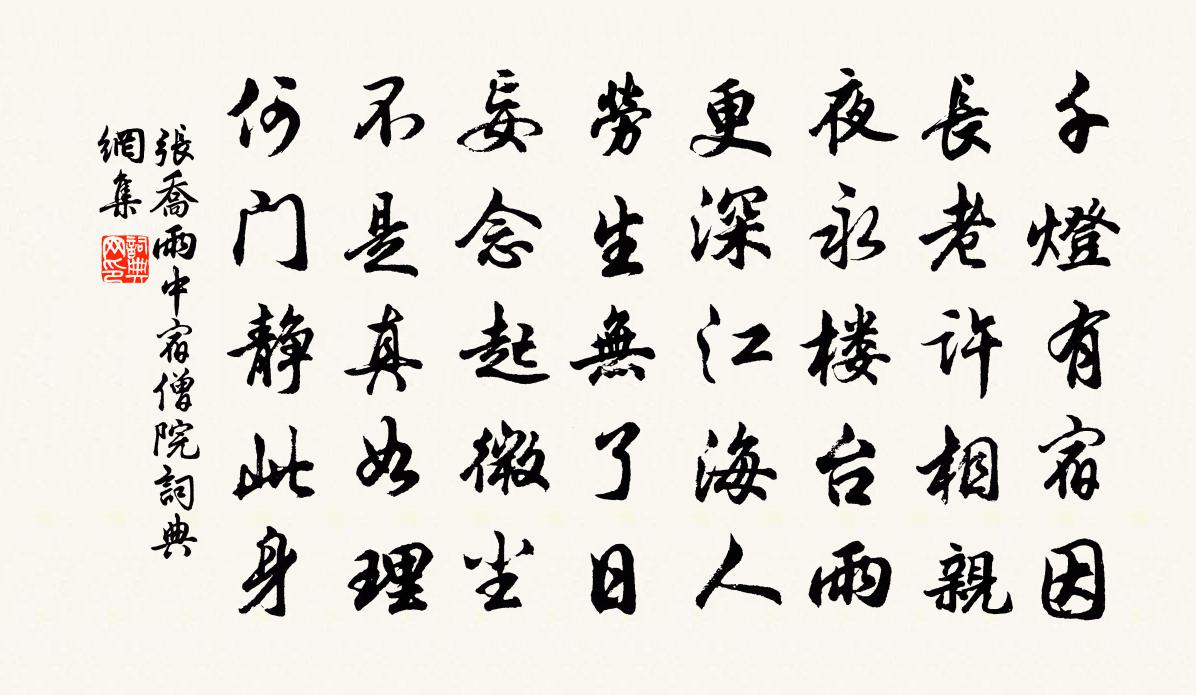 千燈有宿因
長老許相親
夜永楼台雨
更深江海人
勞生無了日
妄念起微尘
不是真如理
何门静此身
張喬雨中宿僧院詞典
網集
詞典
网印